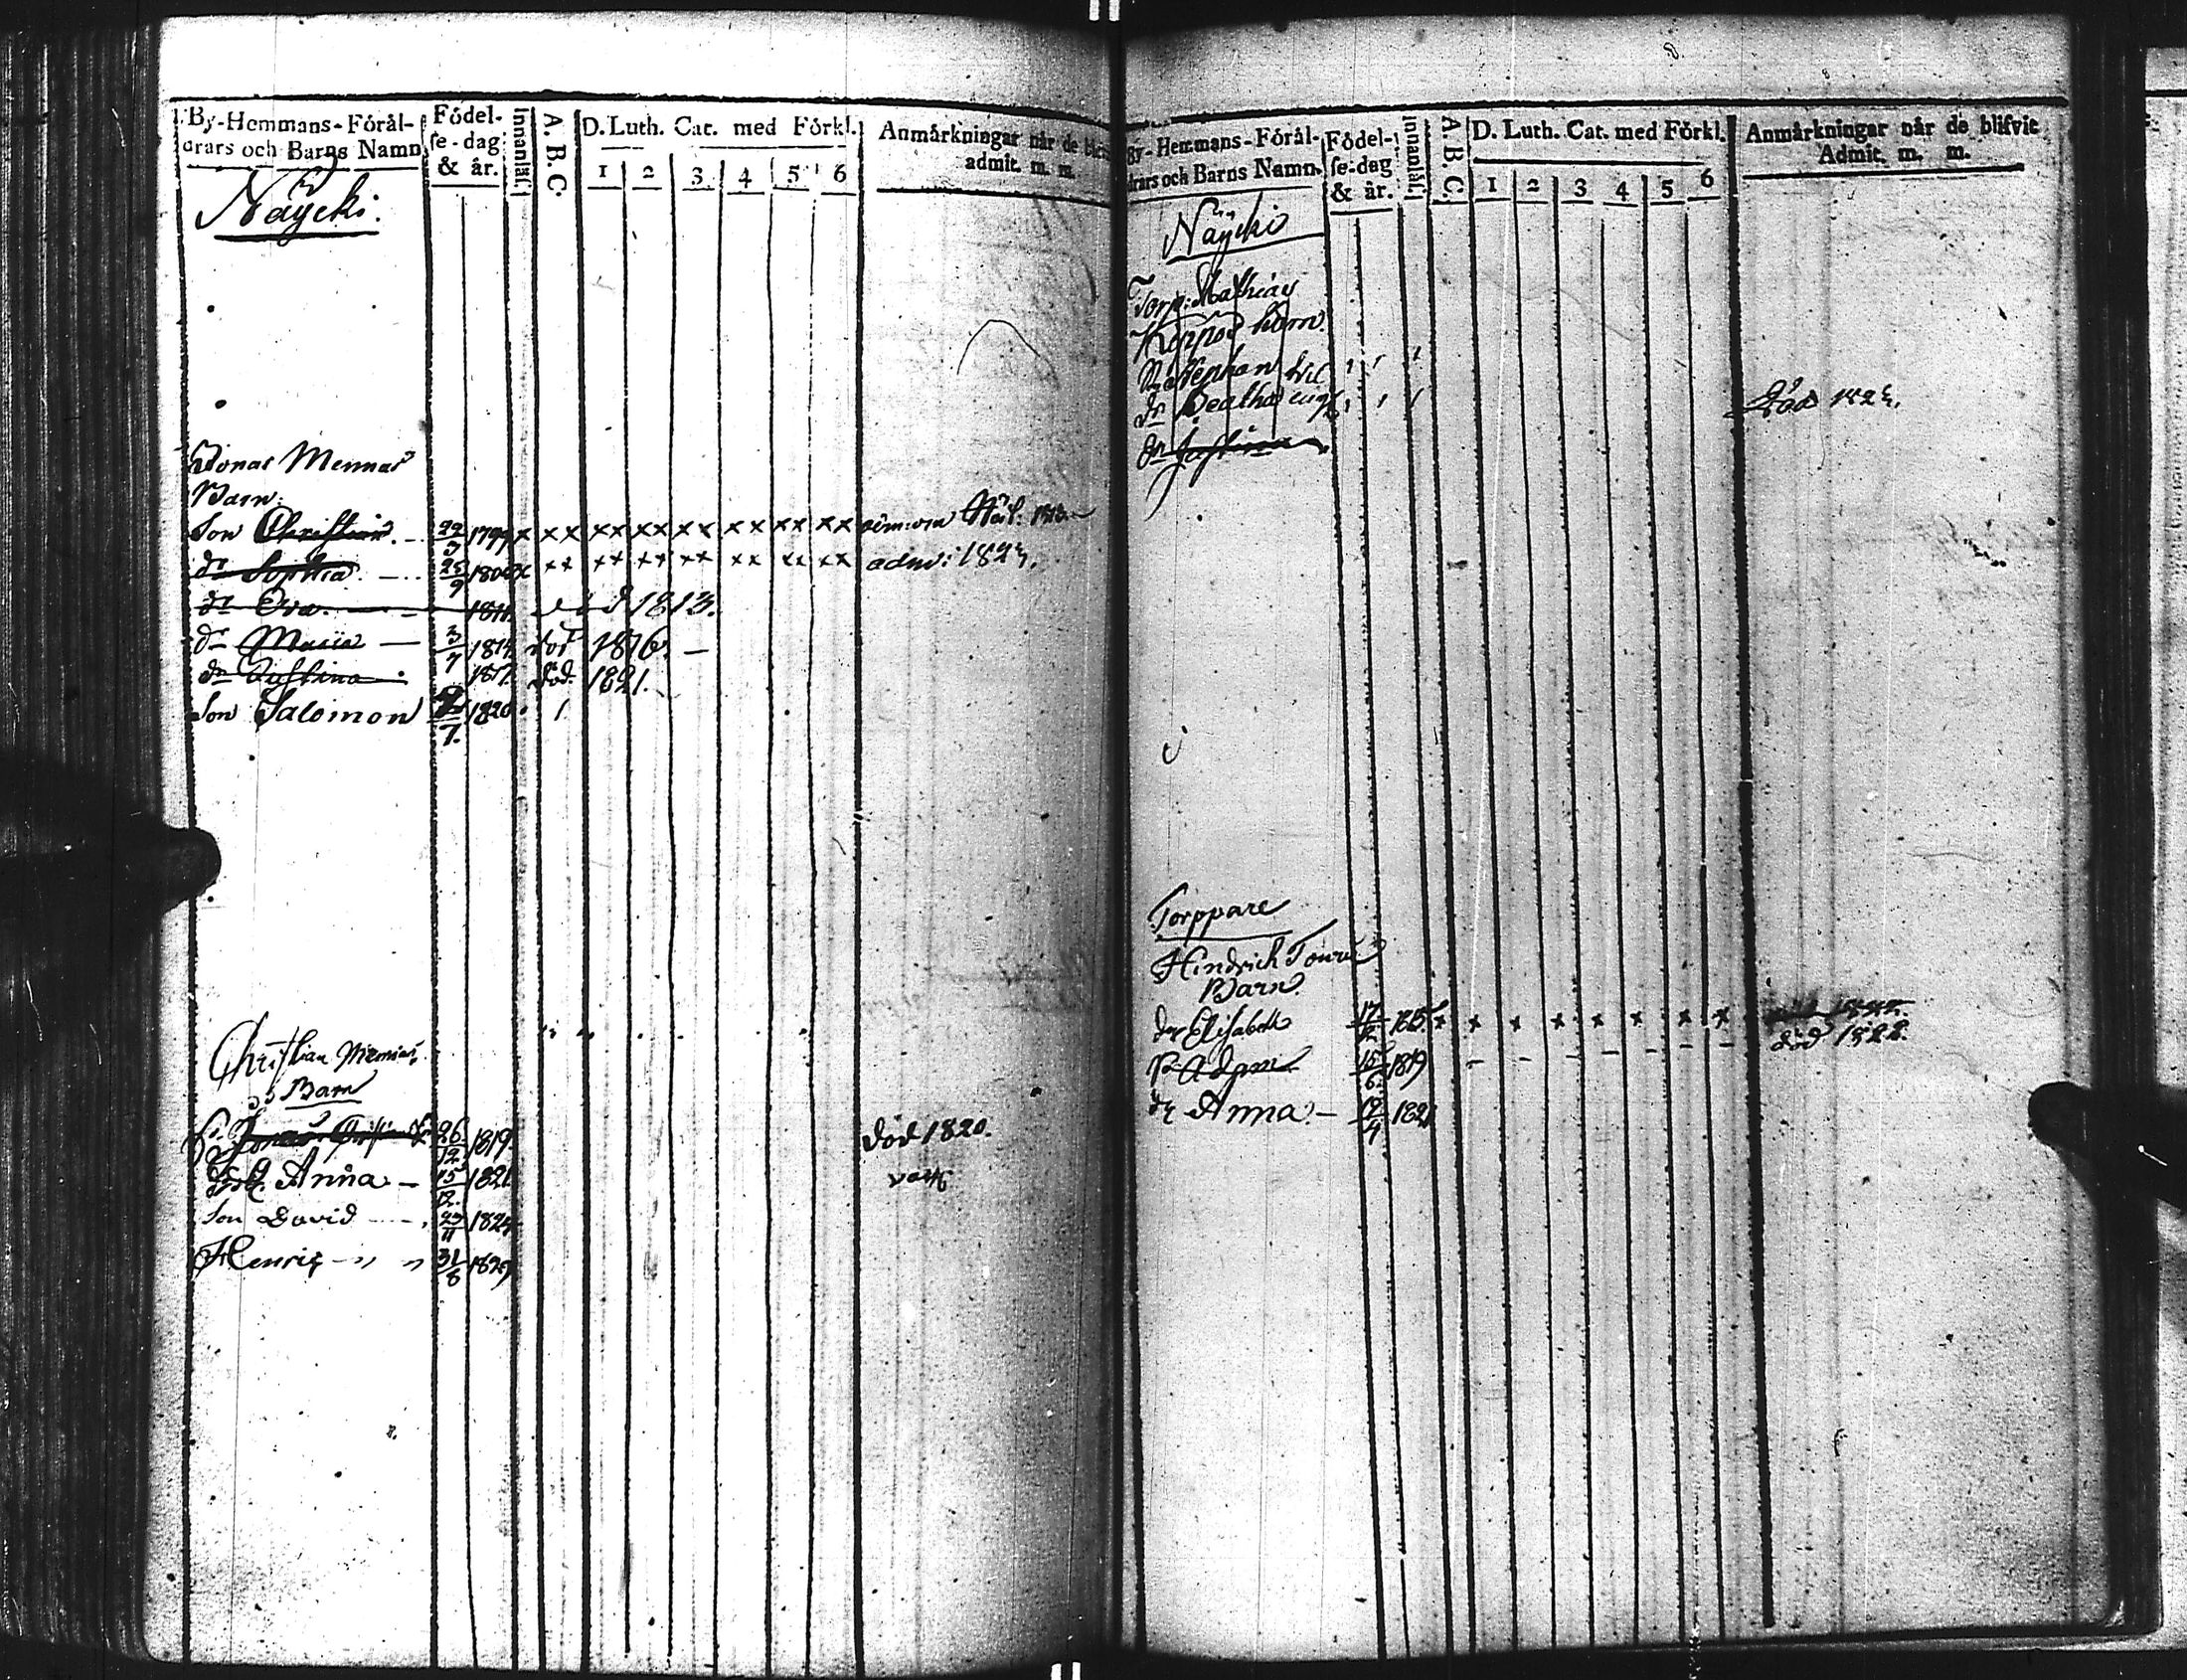 By-Hemmans-Föräl-
drars och Barns Namn
Födel-
se-dag
& år.
Innanläs.
A. B. C.
D. Luth. Cat. med Förkl.
1 2 3 4 5 6
Anmärkningar når de
admit. m. m.
Näycki.
Jonas Mennas
Barn:
Son Christian. 22/3 1799 x xx xx xx xx xx xx xx
dr Sophia. 25/9 x xx xx xx xx xx xx xx adm: 1823.
dr Eva. 1811. död 1813.
dr Maria 3/7 1814 död 1816.
dr Justina 1817. död 1821.
Son Salomon /7. 1820
Christian Mennas
Barn
S. Jonas 26/12 1819. död 1820.
Anna 15/12. 1821
Son David 1824
Henric 31/8 1829
By-Hemmans-Föräl-
drars och Barns Namn.
Födel-
se-dag
& år.
Innanläs.
A. B. C.
D. Luth. Cat. med Förkl.
1 2 3 4 5 6
Anmärkningar når de blifvit
Admit. m. m.
Näycki
Torp: Mathias
Stephan
dr Beatha
död
dr Justina
Torppare
Hindrich
Barn.
dr Elisabeth 17/12 1815 x x x x x x x x
död 1822.
Adam 15/6 1819
dr Anna 1821